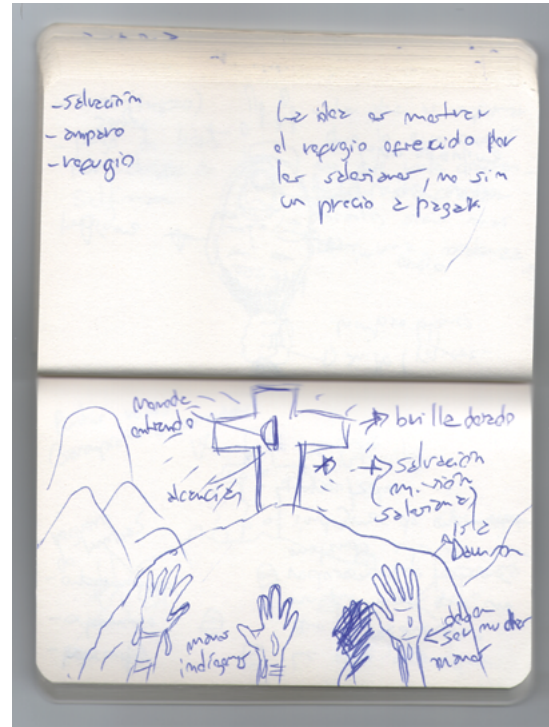 -salvación
-amparo
-refugio
La idea es mostrar
el refugio ofrecido por
los salesianos, no sin
un precio a pagar
entrando
brilla dorado
alcancía
salvación
(misión
salesiana)
isla
Dawson
manos
indígenas
deben
ser muchas
manos